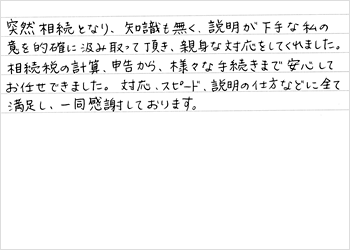 突然相続となり、知識も無く、説明が下手な私の
意を的確に汲み取って頂き、親身な対応をしてくれました。
相続税の計算、申告から、様々な手続きまで安心して
お任せできました。対応、スピード、説明の仕方などに全て
満足し、一同感謝しております。